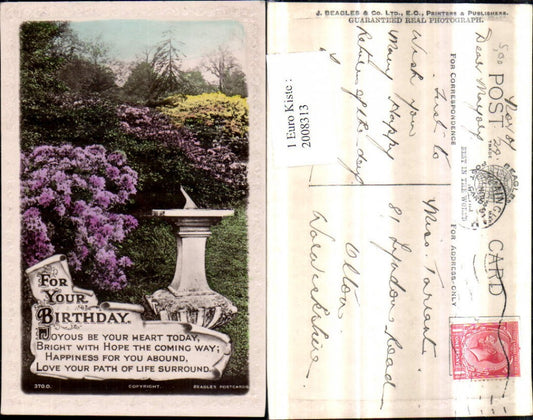 FOR
YOUR
BIRTHDAY.
JOYOUS BE YOUR HEART TODAY,
BRIGHT WITH HOPE THE COMING WAY;
HAPPINESS FOR YOU ABOUND,
LOVE YOUR PATH OF LIFE SURROUND.
370.D.
COPYRIGHT.
BEAGLES POSTCARDS
1 Euro Kiste :
2008313
J. BEAGLES & CO. LTD., E.C., PRINTERS & PUBLISHERS.
GUARANTEED REAL PHOTOGRAPH.
POST CARD
FOR CORRESPONDENCE
FOR ADDRESS ONLY
BEST IN THE WORLD
Dear
Just to
Wish you
Many Happy
Returns of the day
Miss. Tarrant.
81 Lyndon Road
Olton.
Warwickshire